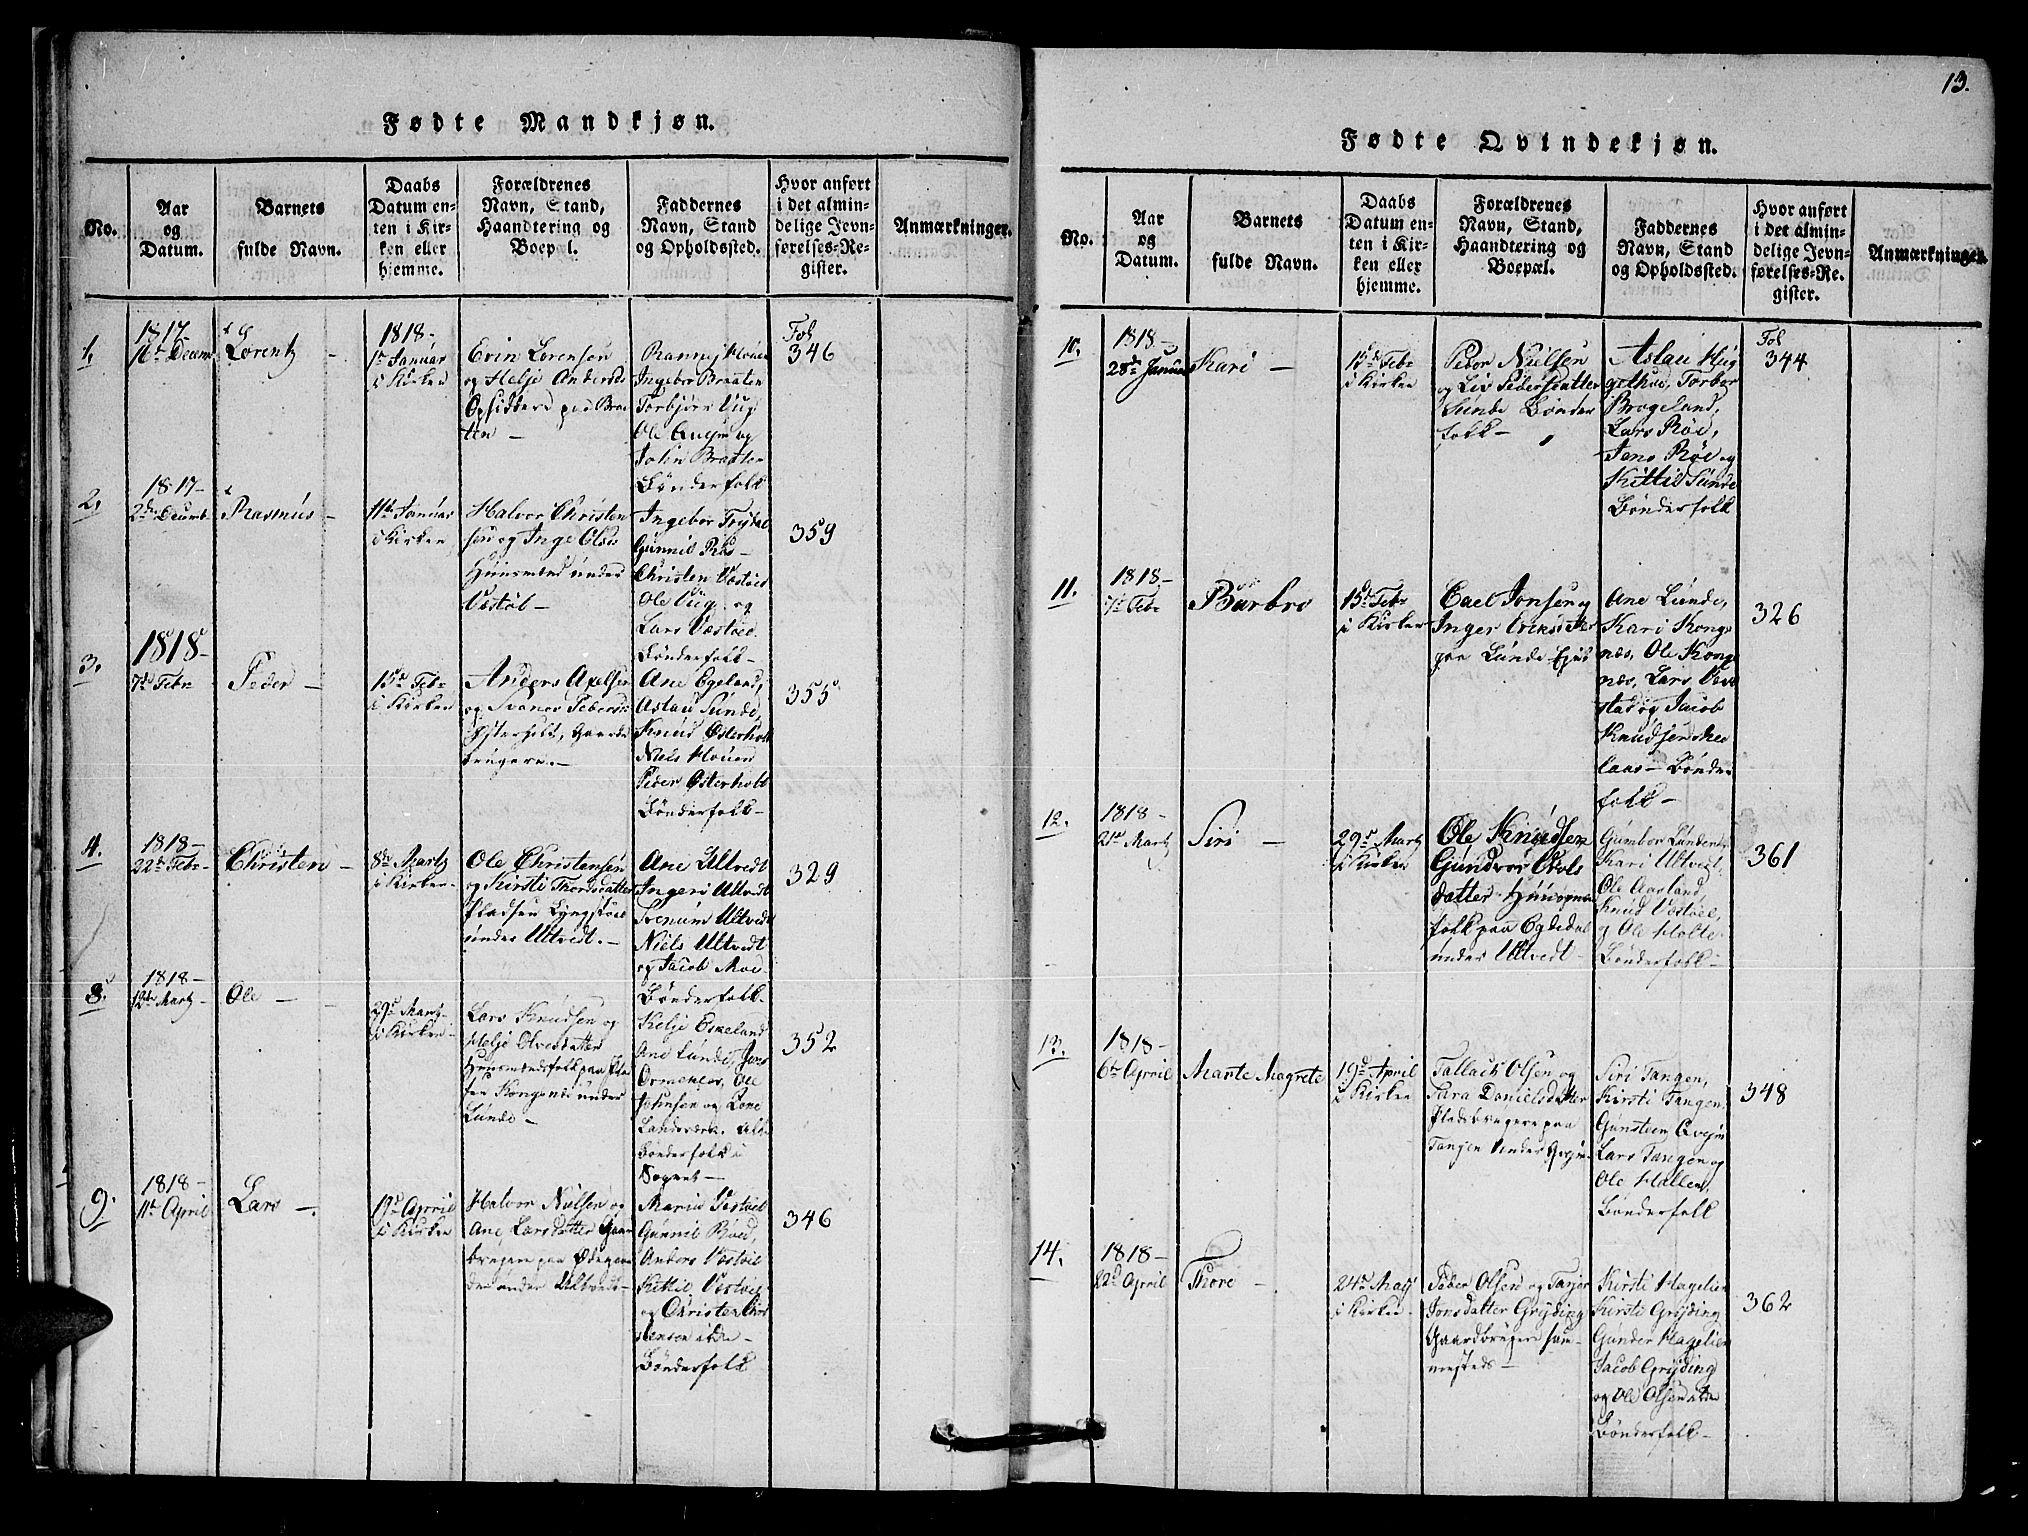 13.
Fødte Mandkjøn.
No.
Aar
og
Datum.
Barnets
fulde Navn.
Daabs
Datum en-
ten i Kir-
ken eller
hjemme.
Forældrenes
Navn, Stand,
Haandtering og
Boepæl.
Faddernes
Navn, Stand
og Opholdssted.
Hvor anført
i det almin-
delige Jevn-
førelses-Re-
gister.
Anmærkninger.
1.
1817
16de Decemb
Lorentz
1818-
1te Januar
i Kirken
Evin Lorensøn
og Helje Andersd
Opsiddere paa Braa
ten -
Ingebor Braaten
Torbjørn Ug
Ole
John Braaten
Bønderfolk
Fol
346
2.
1817-
Decemb
Rasmus -
11te Januar
i Kirken
Halvor Christen
sen og Inge Olsd
Huusmænd under
Væstøl -
Ingebor
Gunnil
Christen Væstøel
Ole Ug og
Lars Væstøel
Bønderfolk -
359
3.
1818-
7de Febr
Peder -
15de Febr
i Kirken
Anders Axelsen
og Svanou Pedersd
Østerholt, Gaard
brugere. -
Ane Egeland,
Aslau Sunde,
Knud Østerholt
Niels Houen
Peder Østerholt
Bønderfolk -
355
4.
1818-
22de Febr
Christen -
8de Martz
i Kirken -
Ole Christensen
og Kirsti Thordsdatter
Pladsen Lyngstøel
under Ultvedt. -
Ane Ultvedt
Ingeri Ultvedt
Ultvedt
Niels Ultvedt
og Jacob Moe
Bønderfolk -
329
8.
1818-
12te Martz -
Ole -
29de Martz -
i Kirken -
Lars Knudsen og
Helje Olvesdatter
Huusmandsfolk paa Pla
sen Kongsnes under
Lunde -
Kelje Eskeland
Ane Lunde, Jens
Ormekler, Ole
Johnsen og Lone
Landsværk. Alle
Bønderfolk i
Sognet -
352
9.
1818-
11te April
Lars -
19de April
i Kirken
Halvor Nielsen og
Ane Larsdatter Gaar
brugere paa Ødegaar
den under Ultvedt -
Maria Vestøel
Gunnil Røed,
Anders Væstøel
Kittil Væstøel
og Christen Chri
stensen alle -
Bønderfolk
346
Fødte Qvindekjøn.
No.
Aar
og
Datum.
Barnets
fulde Navn.
Daabs
Datum en-
ten i Kir-
ken eller
hjemme.
Forældrenes
Navn, Stand,
Haandtering og
Boepæl.
Faddernes
Navn, Stand
og Opholdssted.
Hvor anført
i det almin-
delige Jevn-
førelses-Re-
gister.
Anmærkninger.
10.
1818-
28de Januar
Kari -
15de Febr
i Kirken
Peder Nielsen
og Liv Pedersdatter
Sunde Bønder
folk -
Aslau Hug
gethue, Torbor
Brogeland,
Lars Røe,
Jens Røe og
Kittil Sunde
Bønderfolk
Fol
344
11.
1818-
7de Febr
Barbro
15de Febr
i Kirken
Carl Jonsen og
Inger Eriksdatter
paa Lunde
Ane Lunde,
Kari Kongs
næs, Ole Kongs
næs, Lars Væv
stad og Jacob
Knudsen
Bønder
folk -
326
12.
1818-
21de Martz
Siri -
29de Martz
i Kirken
Ole Knudsen
Gundvor Olvs
datter
folk paa Egdedal
under Ultvedt -
Gunbor Lunden
Kari Ultvedt,
Ole Aasland,
Knud Væstøel,
og Ole Holte
Bønderfolk -
361
13.
1818-
6te April
Marte Magrete
19de April
i Kirken
Tallack Olsen og
Sara Danielsdatter
Pladsbrugere paa
Tangen under
Siri Tangen,
Kirsti Tangen,
Gunsteen
Lars Tangen og
Ole Hallen,
Bønderfolk
348
14.
1818-
22de April
Thore -
24de Maj
i Kirken -
Peder Olsen og Tarjer
Jonsdatter Gryding
Gaardbrugere sam
mesteds -
Kirsti Hagelien
Kirsti Gryding
Gunder Hagelien
Jacob Gryding
og Ole Olsen alle
Bønderfolk -
362